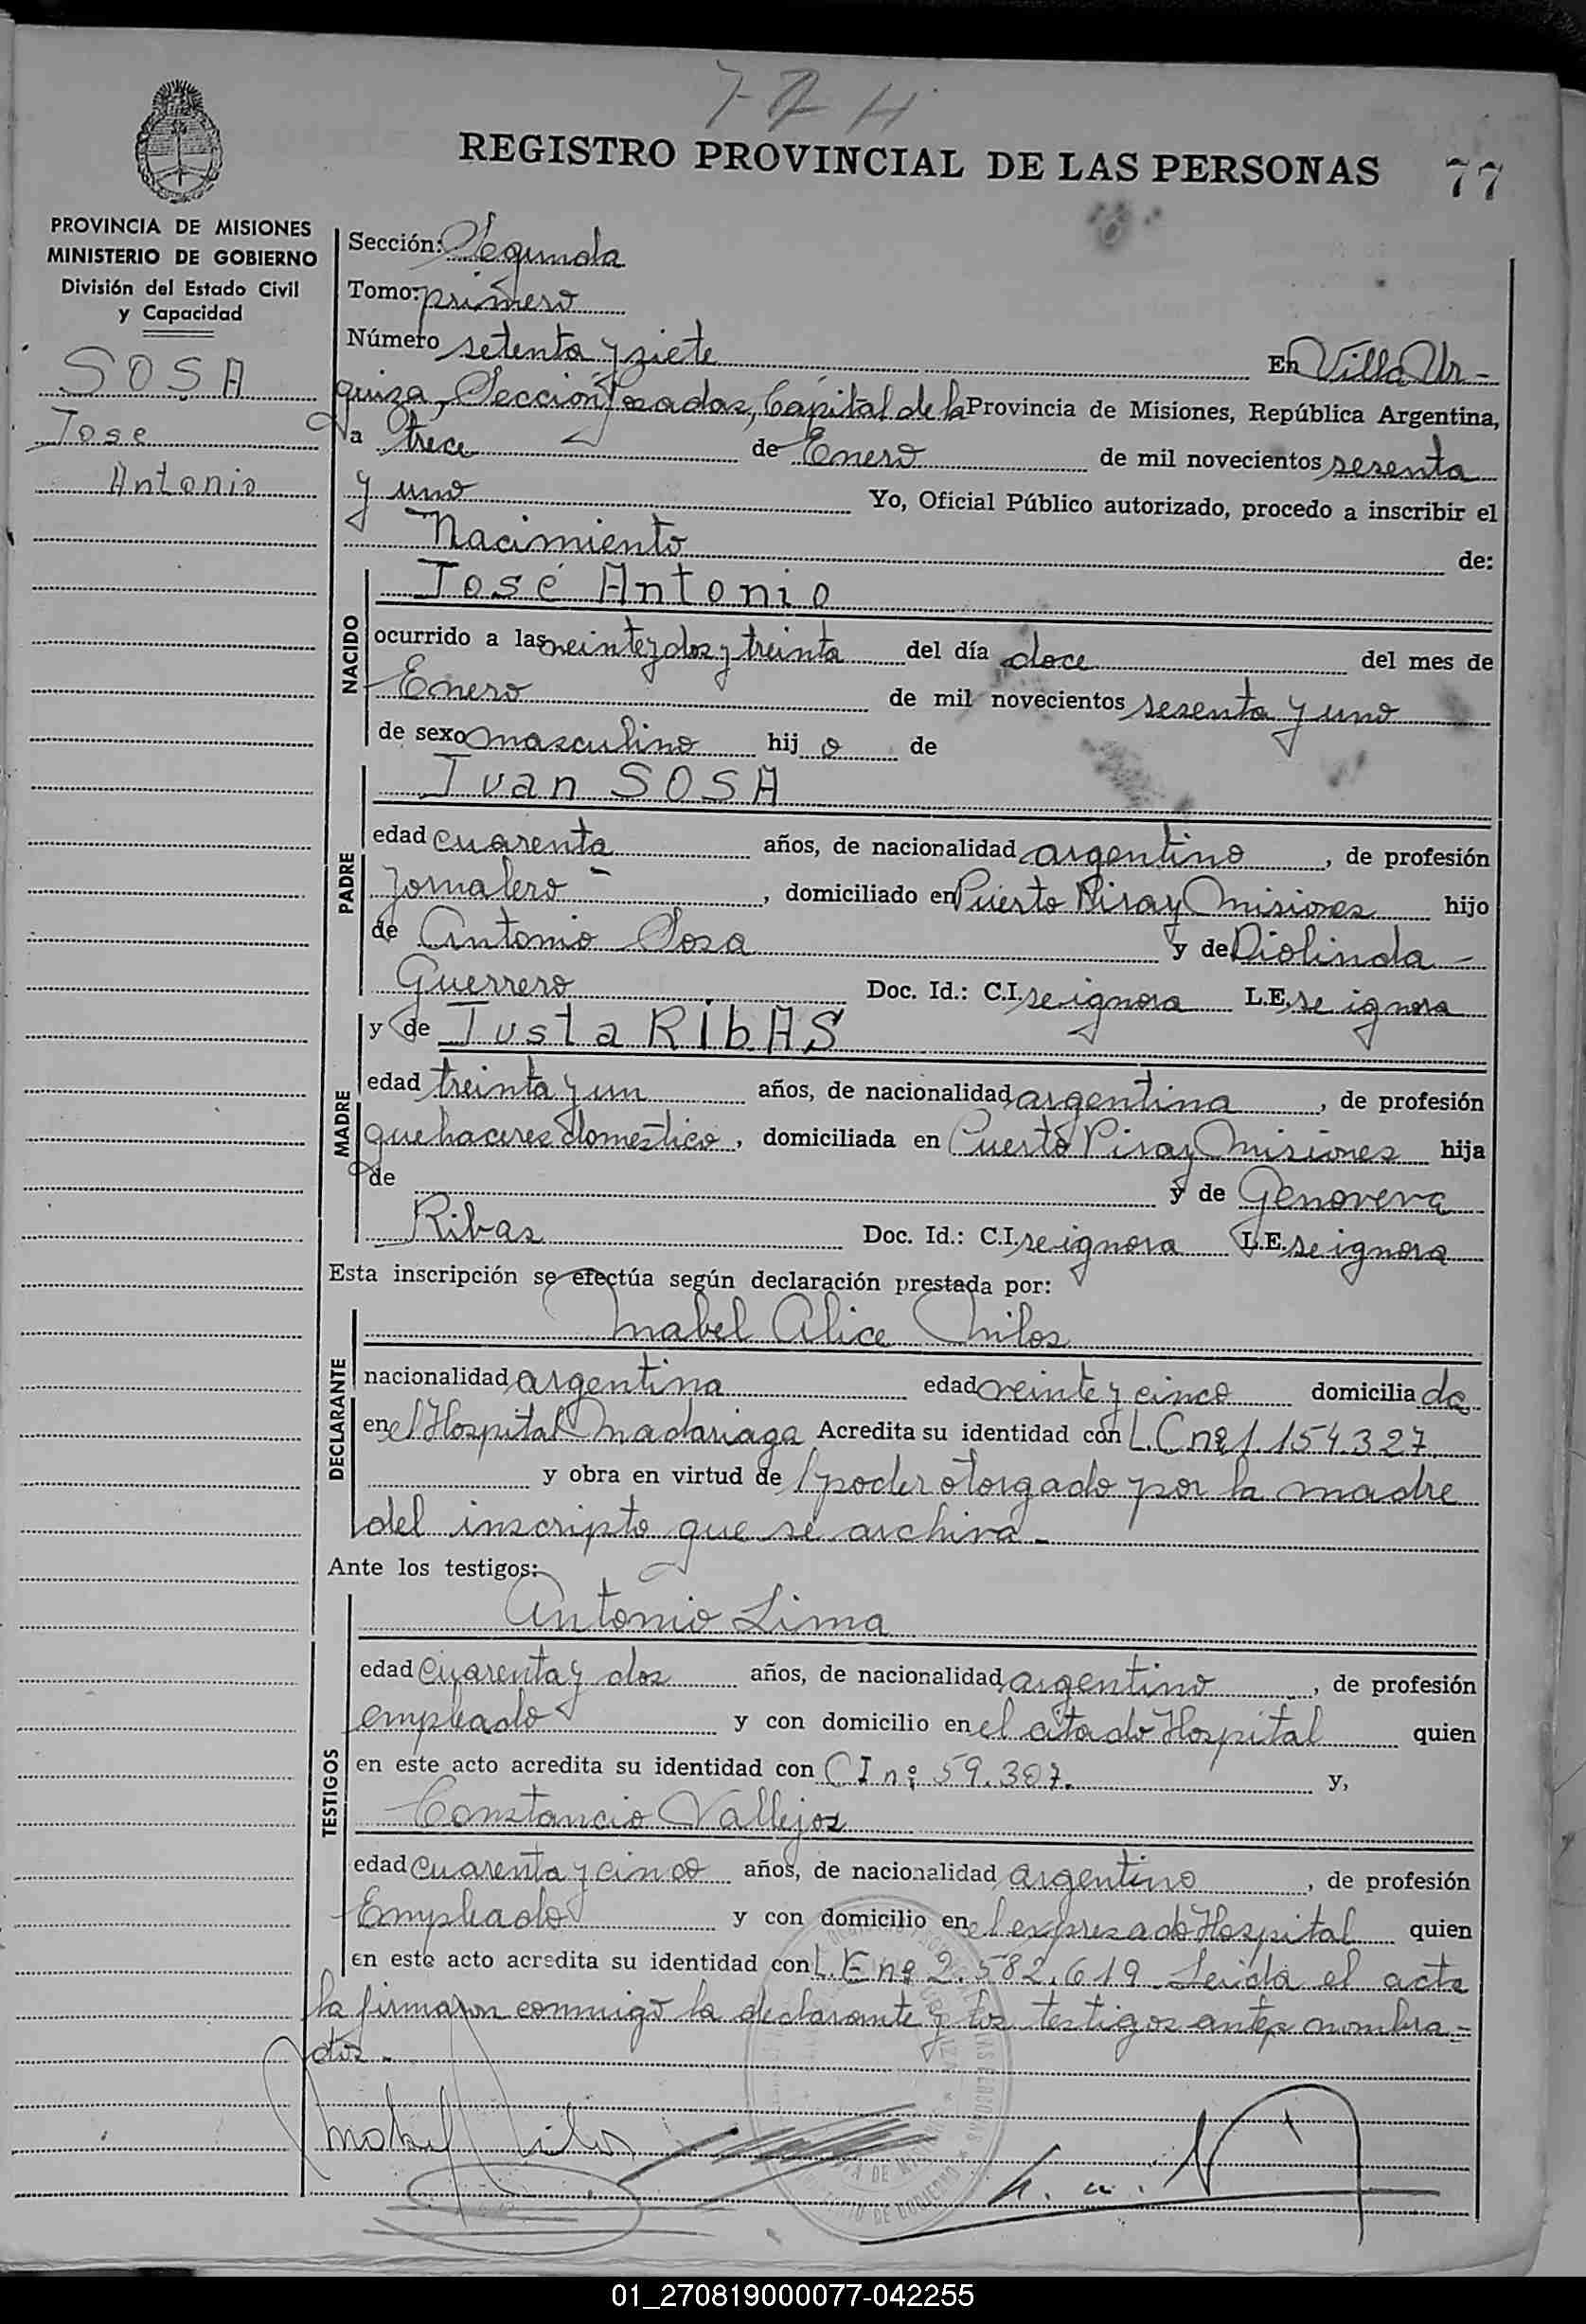 REGISTRO PROVINCIAL DE LAS PERSONAS 77
PROVINCIA DE MISIONES
MINISTERIO DE GOBIERNO
División del Estado Civil
y Capacidad
SOSA
Jose
Antonio
Sección: Segunda
Tomo: primero
Número setenta y siete En Villa Ur-
quiza, Sección Posadas, Capital de la Provincia de Misiones, República Argentina,
a trece de Enero de mil novecientos sesenta
y uno Yo, Oficial Público autorizado, procedo a inscribir el
Nacimiento de:
NACIDO
José Antonio
ocurrido a las veinte y dos y treinta del día doce del mes de
Enero de mil novecientos sesenta y uno
de sexo masculino hijo de
PADRE
Ivan SOSA
edad cuarenta años, de nacionalidad argentino, de profesión
Jornalero, domiciliado en Puerto Piray Misiones hijo
de Antonio Sosa y de Diolinda -
Guerrero Doc. Id.: C.I. se ignora L.E. se ignora
MADRE
y de Justa RIbAS
edad treinta y un años, de nacionalidad argentina, de profesión
quehaceres domestico, domiciliada en Puerto Piray Misiones hija
de y de Genoveva
Ribas Doc. Id.: C.I. se ignora L.E. se ignora
Esta inscripción se efectúa según declaración prestada por:
DECLARANTE
Mabel Alice Milos
nacionalidad argentina edad veinte y cinco domiciliada
en el Hospital Madariaga Acredita su identidad con L.C nº 1.154.327
y obra en virtud de poder otorgado por la madre
del inscripto que se archiva -
Ante los testigos:
TESTIGOS
Antonio Lima
edad cuarenta y dos años, de nacionalidad argentino, de profesión
empleado y con domicilio en el citado Hospital quien
en este acto acredita su identidad con C I nº 59.307. y,
Constancio Vallejos
edad cuarenta y cinco años, de nacionalidad argentino, de profesión
Empleado y con domicilio en el expresado Hospital quien
en este acto acredita su identidad con L.E nº 2.582.619 Leida el acta
la firmaron conmigo la declarante y los testigos antes nombra-
dos -
Mabel Milos
01_270819000077-042255